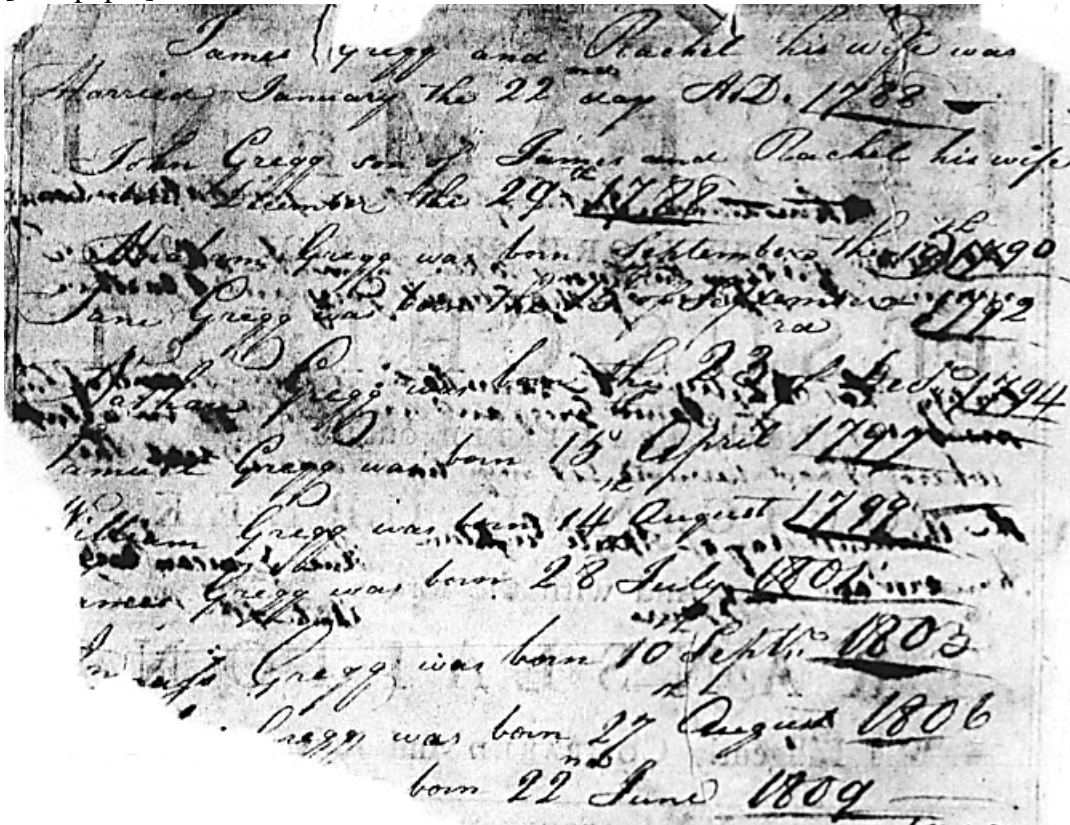 James Gregg and Rachel his wife was
Married January the 22nd day A.D. 1788
John Gregg son of James and Rachel his wife
December the 29th 1788
Abraham Gregg was born September the 1790
Jane Gregg was born the of September 1792
Nathan Gregg was born the 23rd of 1794
Samuel Gregg was born 15 April 1797
William Gregg was born 14th August 1799
James Gregg was born 28 July 1801
Gregg was born 10th Sept. 1803
Gregg was born 27th August 1806
born 22nd June 1809